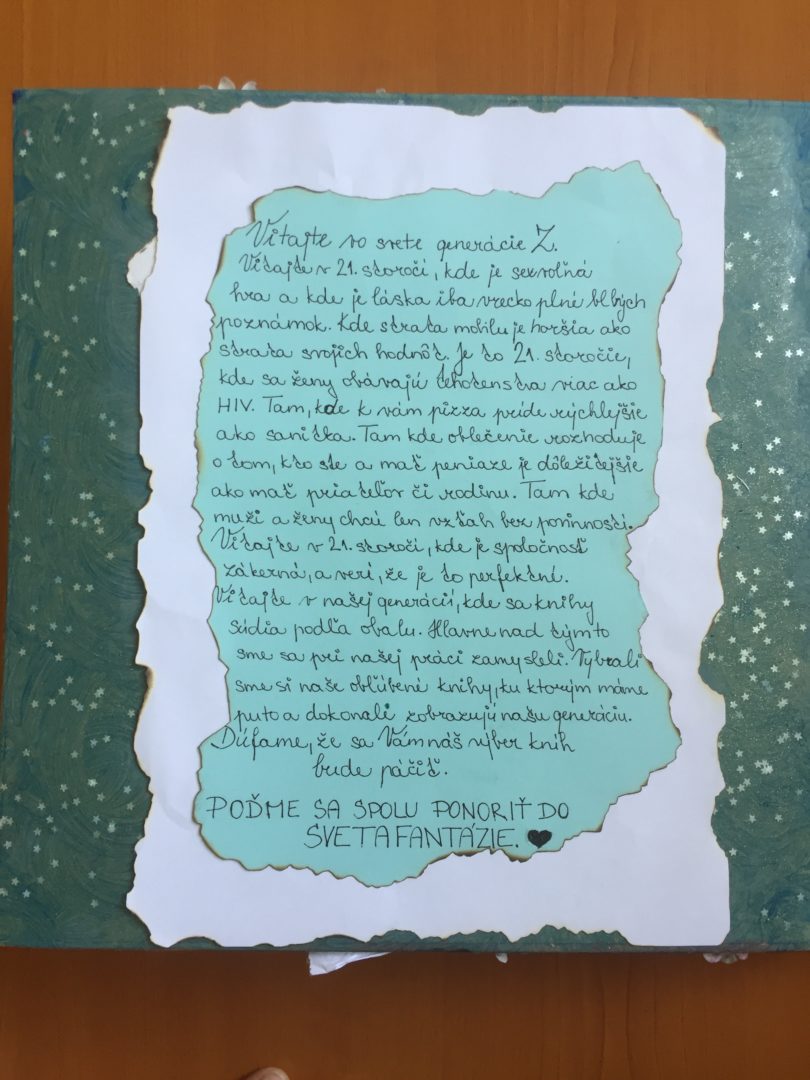 Vitajte vo svete generácie Z.
Vitajte v 21. storočí, kde je sex voľná
hra a kde je láska iba vrecko plné blbých
poznámok. Kde strata mobilu je horšia ako
strata svojich hodnôt. Je to 21. storočie,
kde sa ženy obávajú tehotenstva viac ako
HIV. Tam, kde k vám pizza príde rýchlejšie
ako sanitka. Tam kde oblečenie rozhoduje
o tom, kto ste a mať peniaze je dôležitejšie
ako mať priateľov či rodinu. Tam kde
muži a ženy chcú len vzťah bez povinností.
Vitajte v 21. storočí, kde je spoločnosť
zákerná, a verí, že je to perfektné.
Vitajte v našej generácií, kde sa knihy
súdia podľa obalu. Hlavne nad týmto
sme sa pri našej práci zamysleli. Vybrali
sme si naše obľúbené knihy, ku ktorým máme
puto a dokonali zobrazujú našu generáciu.
Dúfame, že sa Vám náš výber kníh
bude páčiť.
POĎME SA SPOLU PONORIŤ DO
SVETA FANTÁZIE. ♥